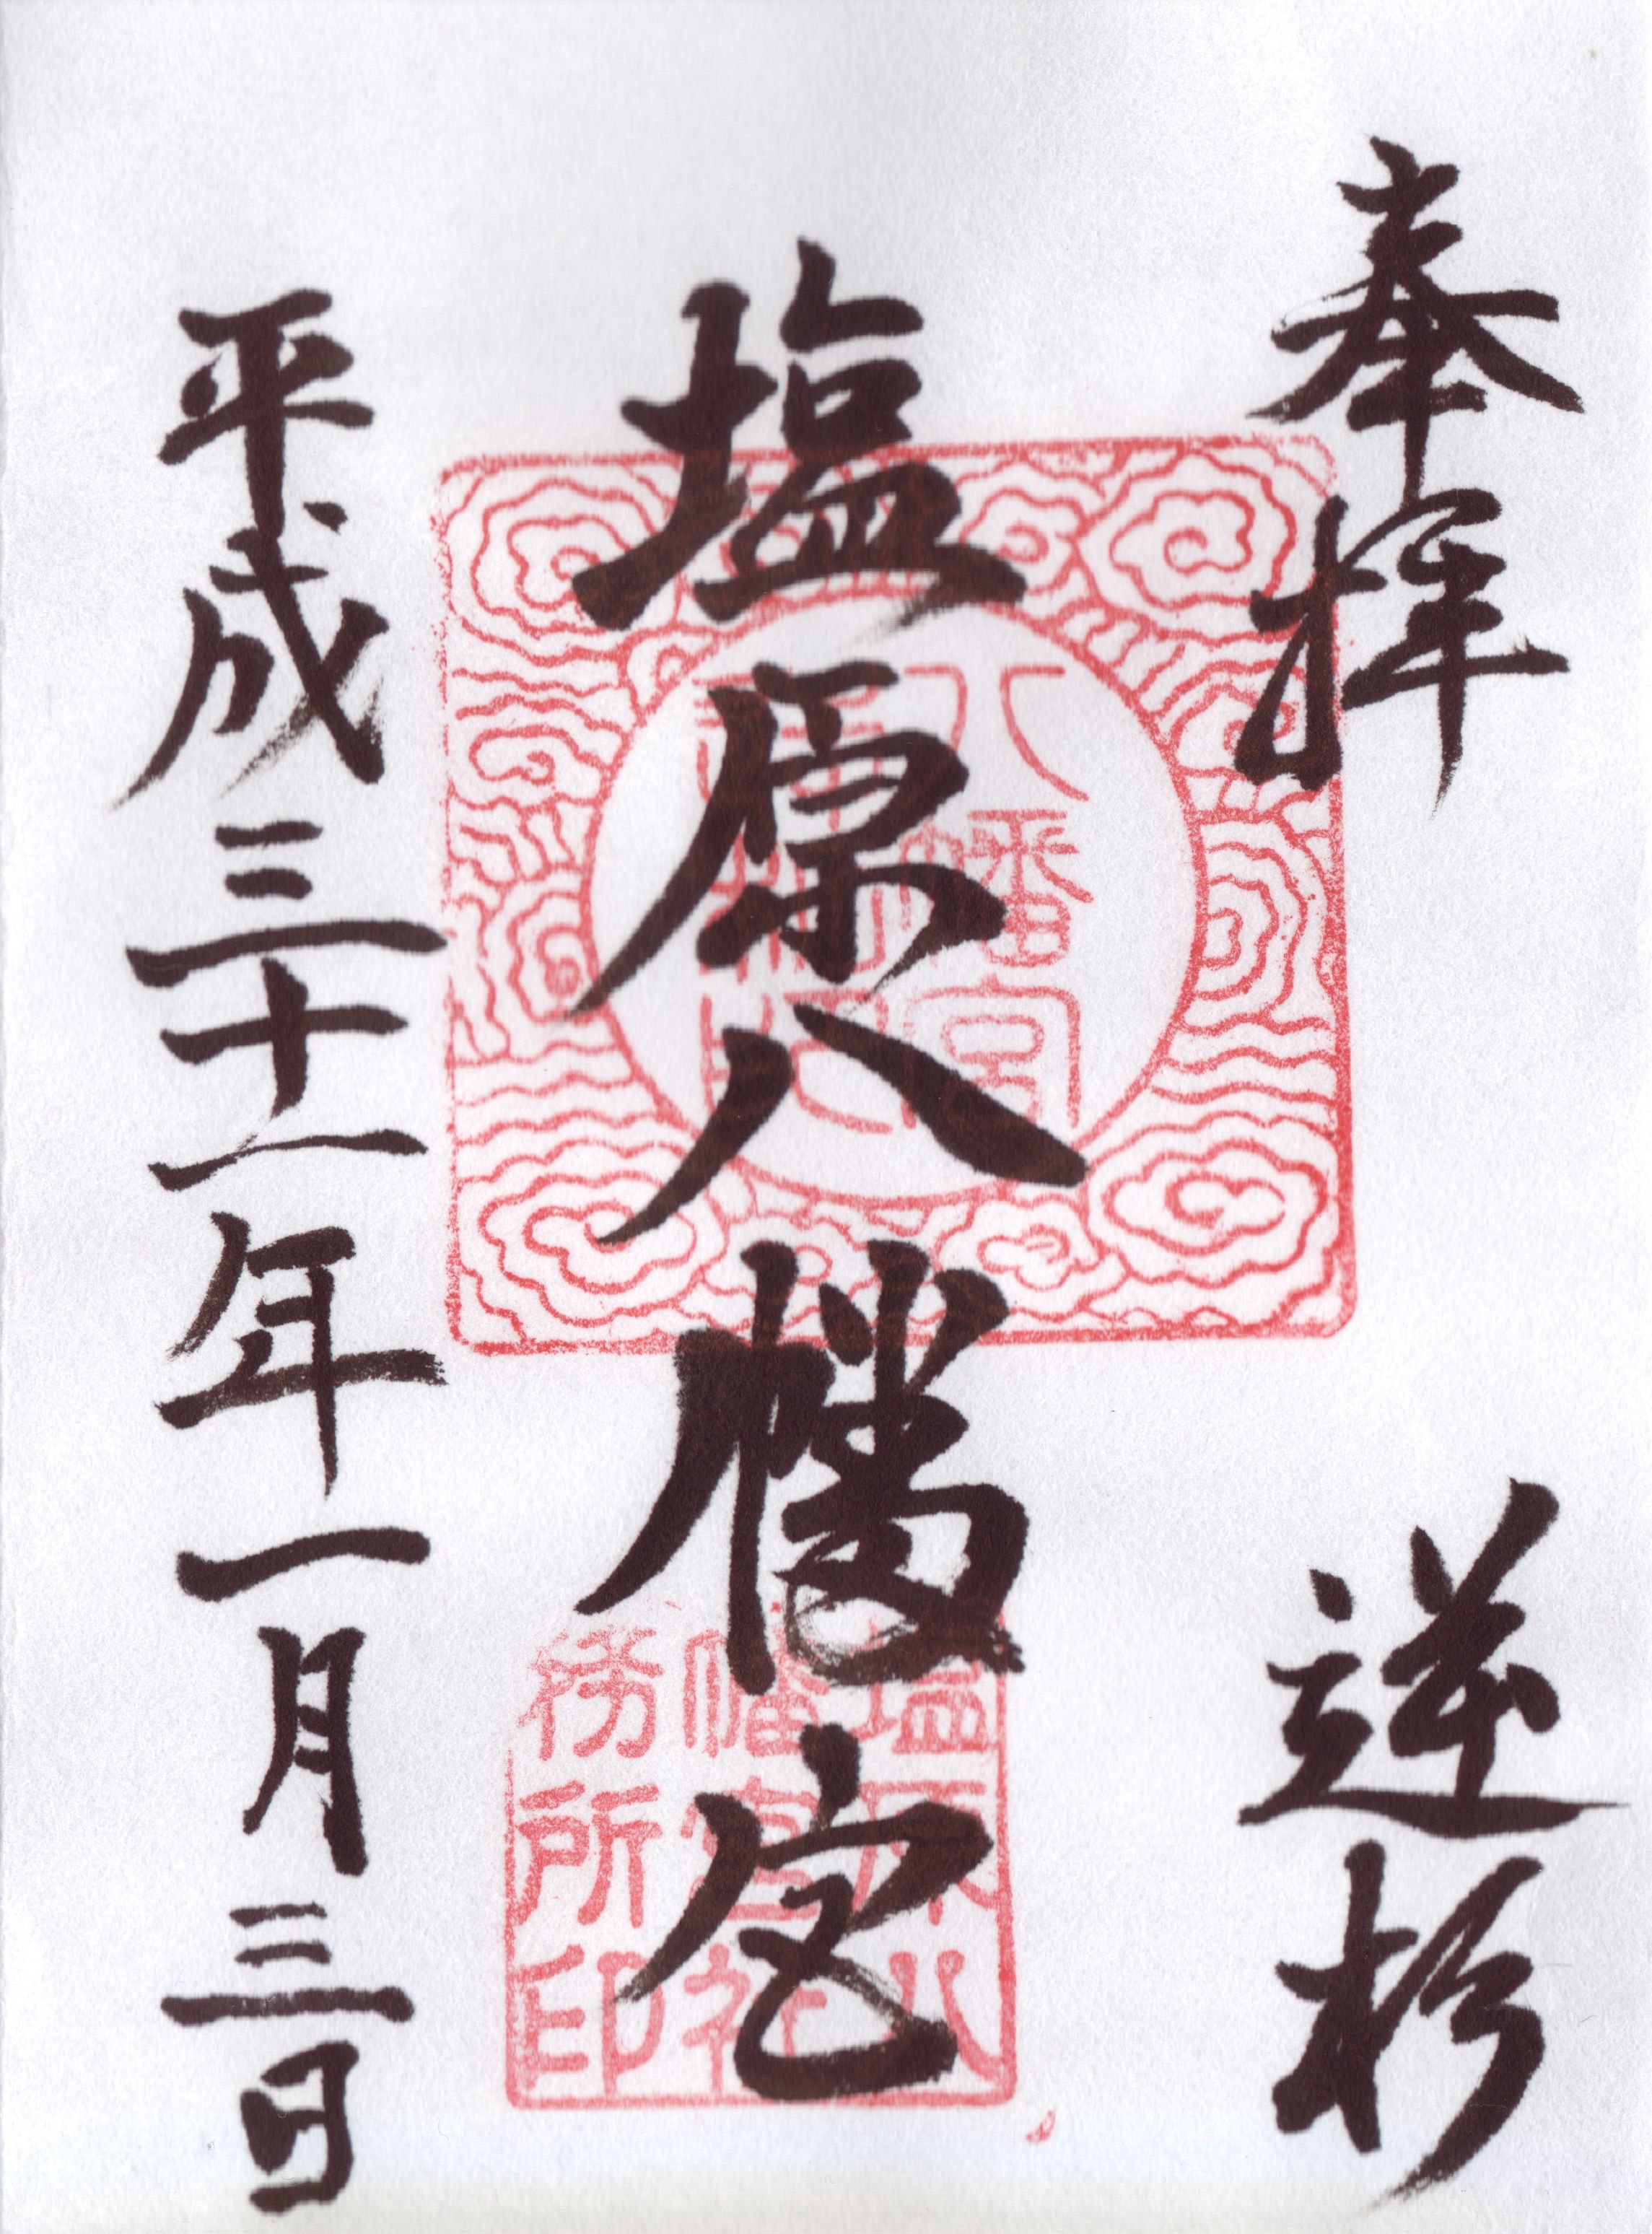 奉拝
逆杉
塩原八幡宮
平成三十一年一月三日
八幡宮
塩原八
幡宮社
務所印